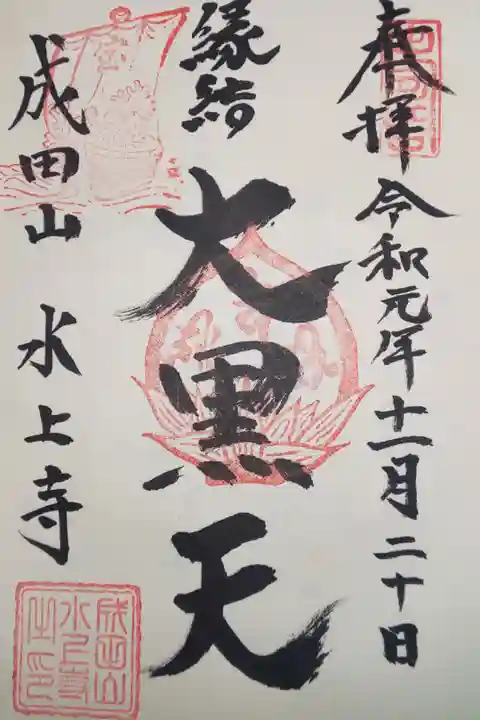 奉拝
令和元年十一月二十日
縁結
大黒天
成田山 水上寺
成田山
水上寺
之印